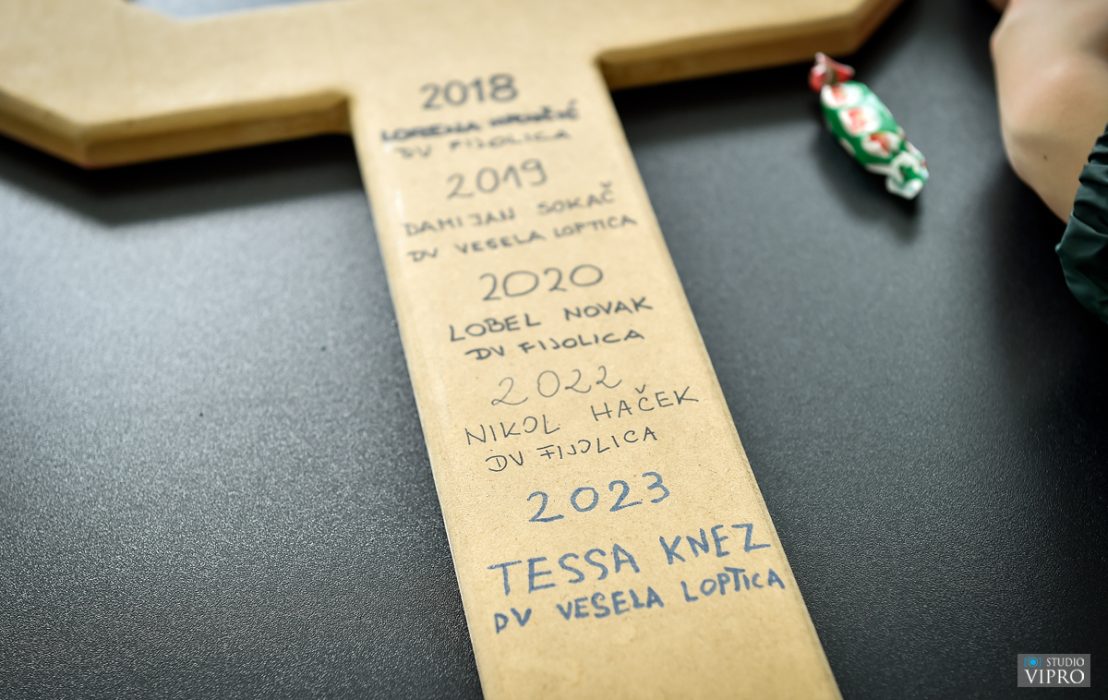 2018
LORENA
DV FIJOLICA
2019
DAMIJAN SOKAČ
DV VESELA LOPTICA
2020
LOBEL NOVAK
DV FIJOLICA
2022
NIKOL HAČEK
DV FIJOLICA
2023
TESSA KNEZ
DV VESELA LOPTICA
STUDIO
VIPRO